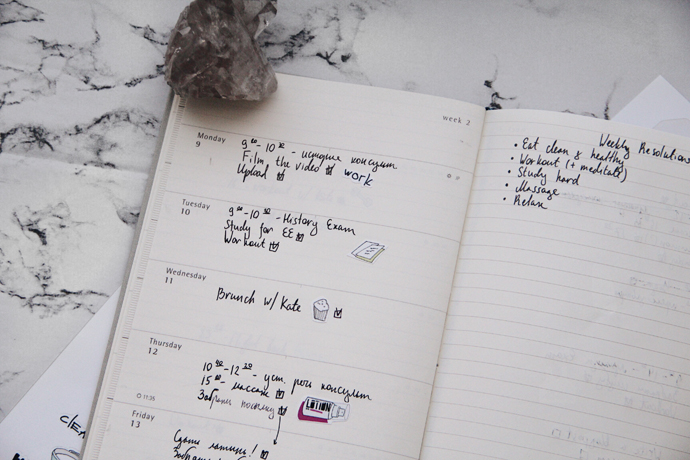 week 2
Monday
9
9⁰⁰-10³⁰ - история консульт
Film the video ☑ work
Upload ☑
Tuesday
10
9⁰⁰-10³⁰ - History Exam
Study for EE ☑
Workout ☑
Wednesday
11
Brunch w/ Kate ☑
Thursday
12
10⁰⁰-12²⁰ - уст. рус консульт
15⁰⁰ - массаж ☑
Забрать посылку ☑
LOTION
11:35
Friday
13
Сдать латынь! ☑
Weekly Resolutions
• Eat clean & healthy
• Workout (+ meditate)
• Study hard
• Massage
• Relax